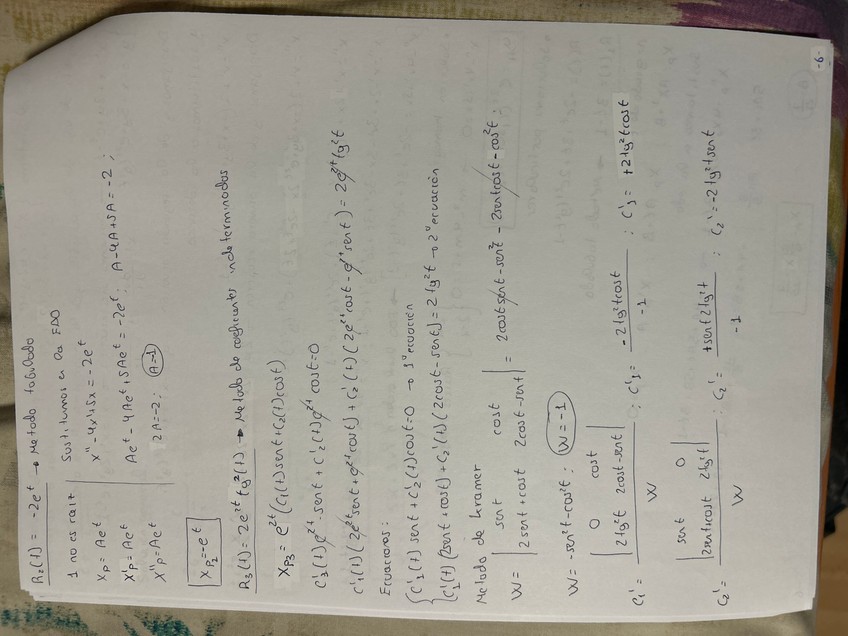 R₂(t) = -2eᵗ → Metodo tabulado
1 no es raiz | Sustituimos en la EDO
Xp = Aeᵗ | x'' - 4x' + 5x = -2eᵗ
X'p = Aeᵗ | Aeᵗ - 4Aeᵗ + 5Aeᵗ = -2eᵗ ; A - 4A + 5A = -2 ;
X''p = Aeᵗ | 2A = -2 ; A=-1
Xp₂ = -eᵗ
R₃(t) = 2e²ᵗ tg²(t) → Metodo de coeficientes indeterminados
Xp₃ = e²ᵗ (C₁(t) sent + C₂(t) cost)
C'₁(t) e²ᵗ sent + C'₂(t) e²ᵗ cost = 0
C'₁(t) (2e²ᵗ sent + e²ᵗ cost) + C'₂(t) (2e²ᵗ cost - e²ᵗ sent) = 2e²ᵗ tg²t
Ecuaciones :
C'₁(t) sent + C'₂(t) cost = 0 → 1º ecuación
C'₁(t) (2sent + cost) + C'₂(t) (2cost - sent) = 2 tg²t → 2º ecuación
Metodo de kramer
W = | sent cost | = 2cost sent - sen²t - 2sent cost - cos²t ;
| 2sent + cost 2cost - sent |
W = -sen²t - cos²t ; W = -1
C₁' = | 0 cost | / W ; C'₁ = -2tg²t cost / -1 ; C'₁ = +2tg²t cost
| 2tg²t 2cost - sent |
C₂' = | sent 0 | / W ; C₂' = +sent 2tg²t / -1 ; C₂' = -2tg²t sent
| 2sent+cost 2tg²t |
-6-